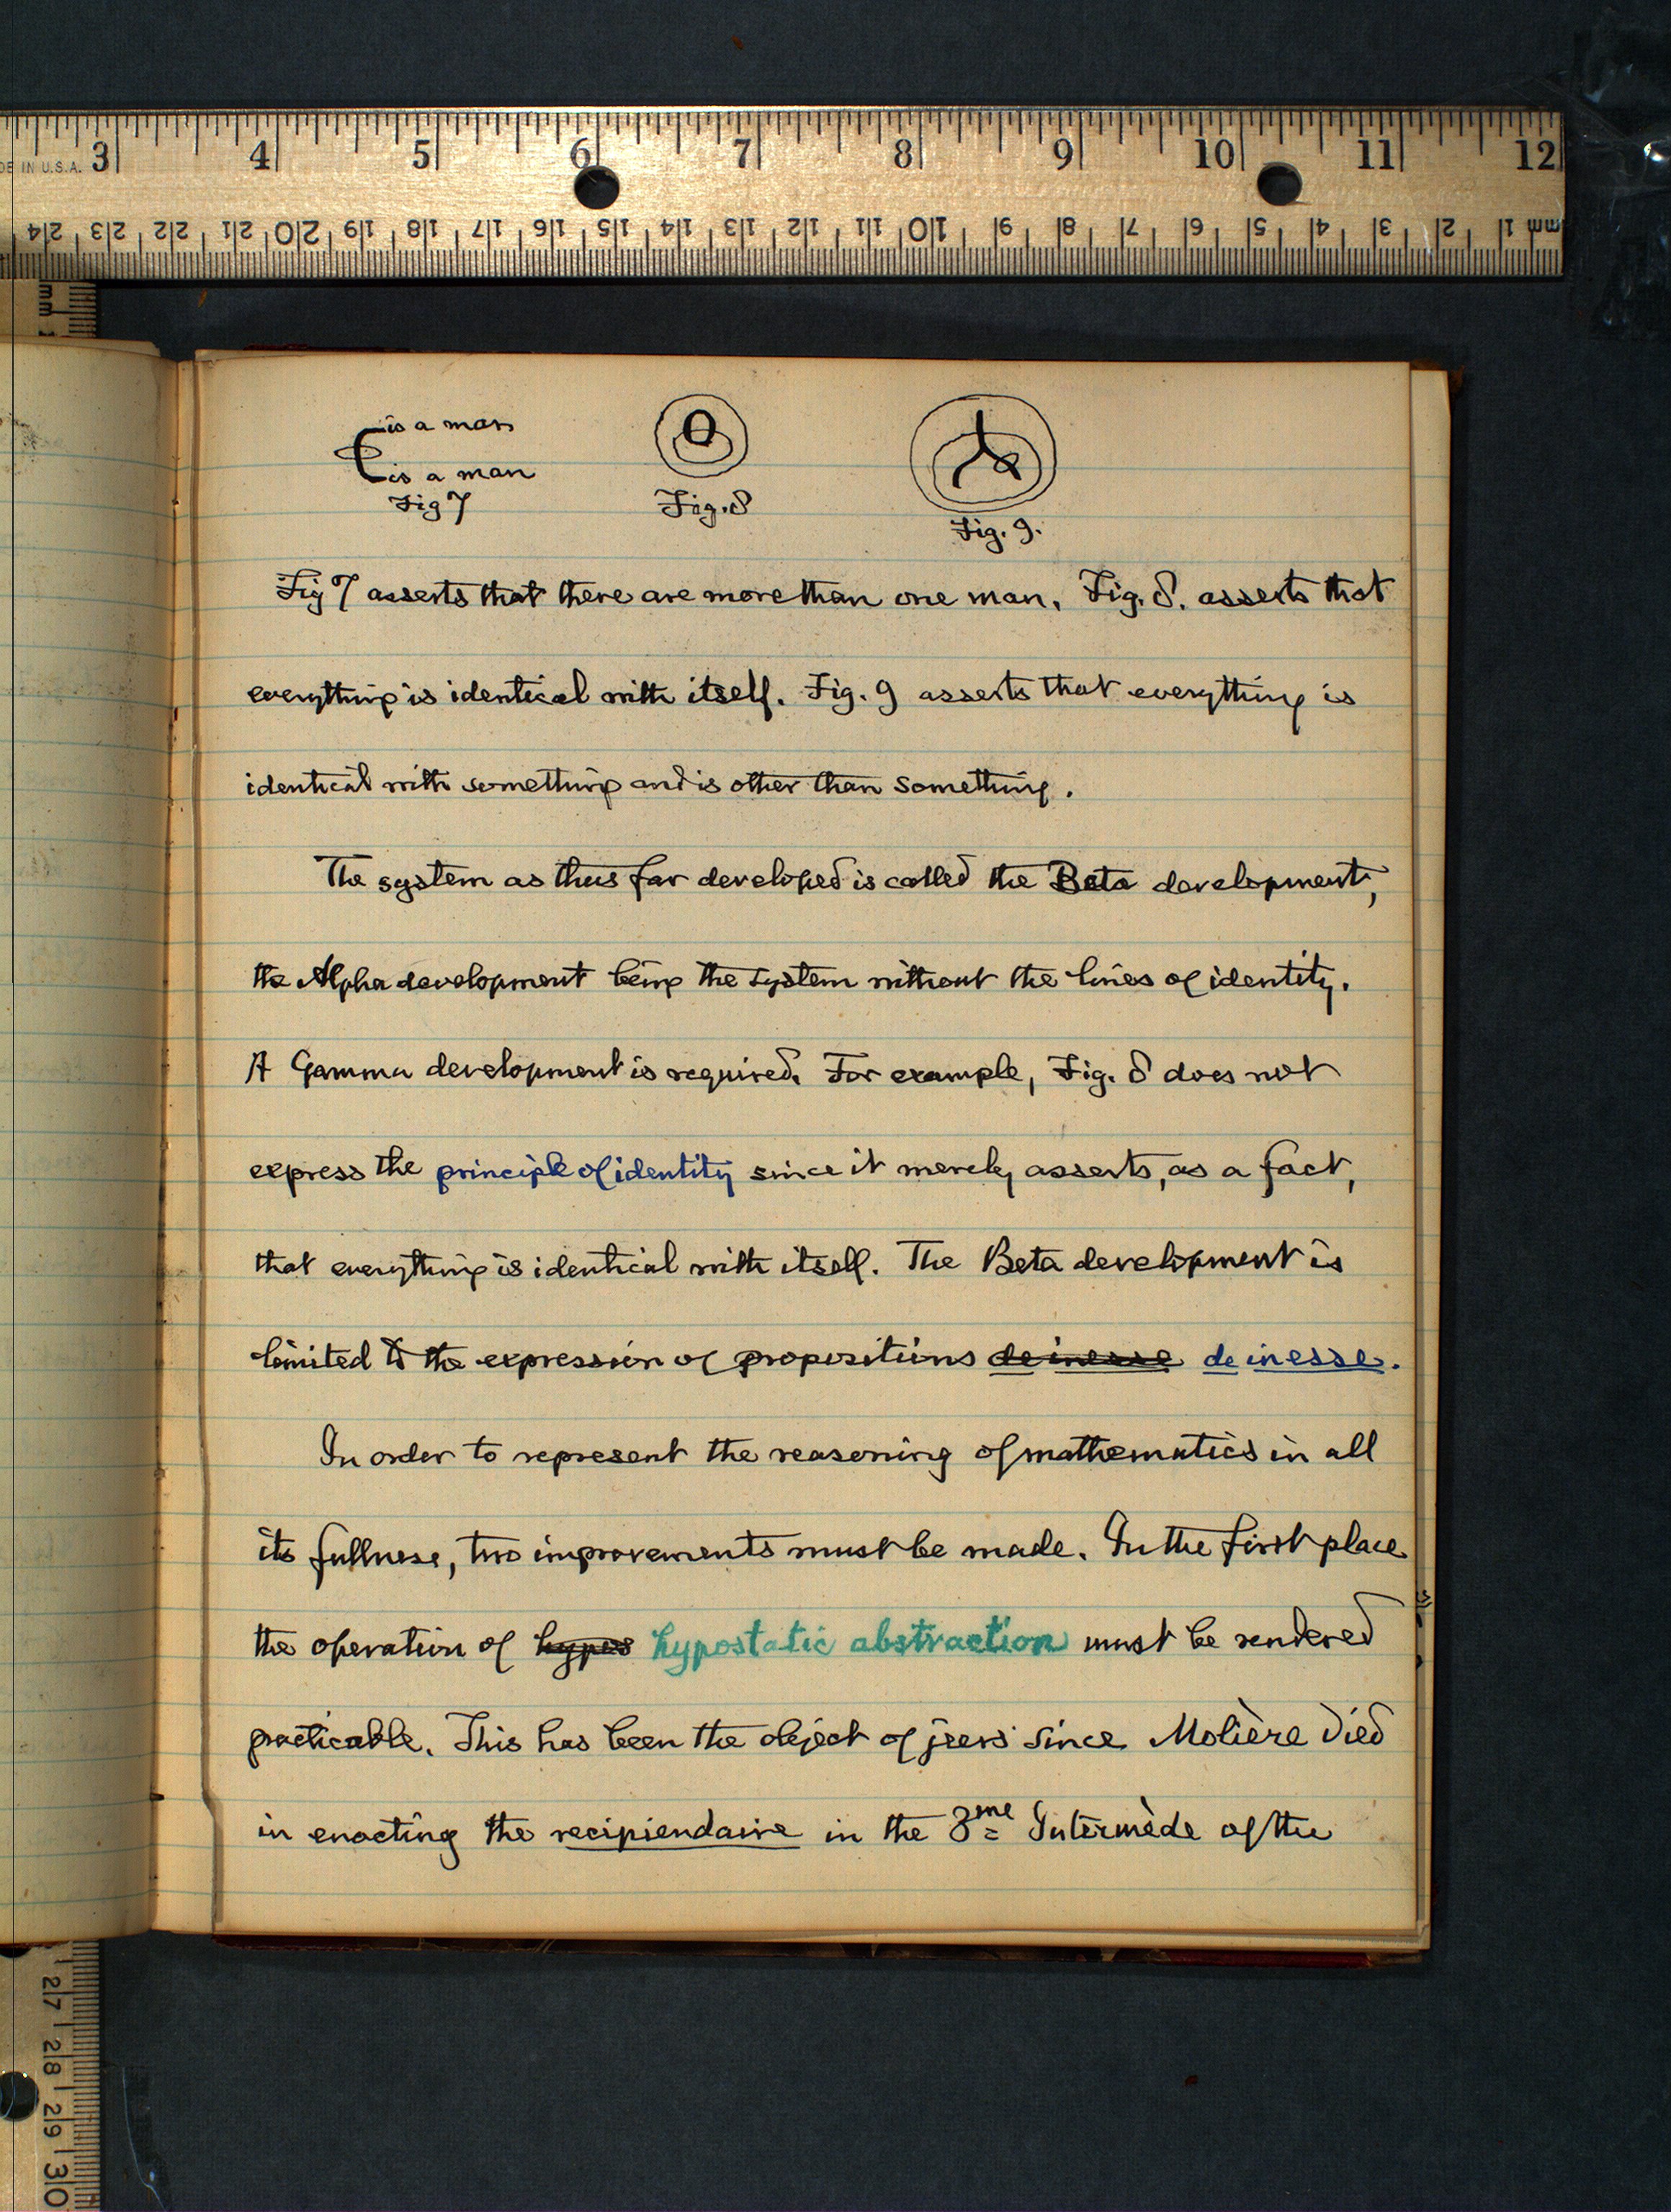 DE IN U.S.A. 3 4 5 6 7 8 9 10 11 12
24 23 22 21 20 19 18 17 16 15 14 13 12 11 10 9 8 7 6 5 4 3 2 1 mm
mm
is a man
is a man
Fig 7 Fig. 8 Fig. 9.
Fig 7 asserts that there are more than one man. Fig. 8. asserts that
everything is identical with itself. Fig. 9 asserts that everything is
identical with something and is other than something.
The system as thus far developed is called the Beta development,
the Alpha development being the system without the lines of identity.
A Gamma development is required. For example, Fig. 8 does not
express the principle of identity since it merely asserts, as a fact,
that everything is identical with itself. The Beta development is
limited to the expression of propositions de inesse de inesse.
In order to represent the reasoning of mathematics in all
its fullness, two improvements must be made. In the first place
the operation of hypos hypostatic abstraction must be rendered
practicable. This has been the object of jeers since Molière died
in enacting the recipiendaire in the 3me Intermède of the
27
28
29
30